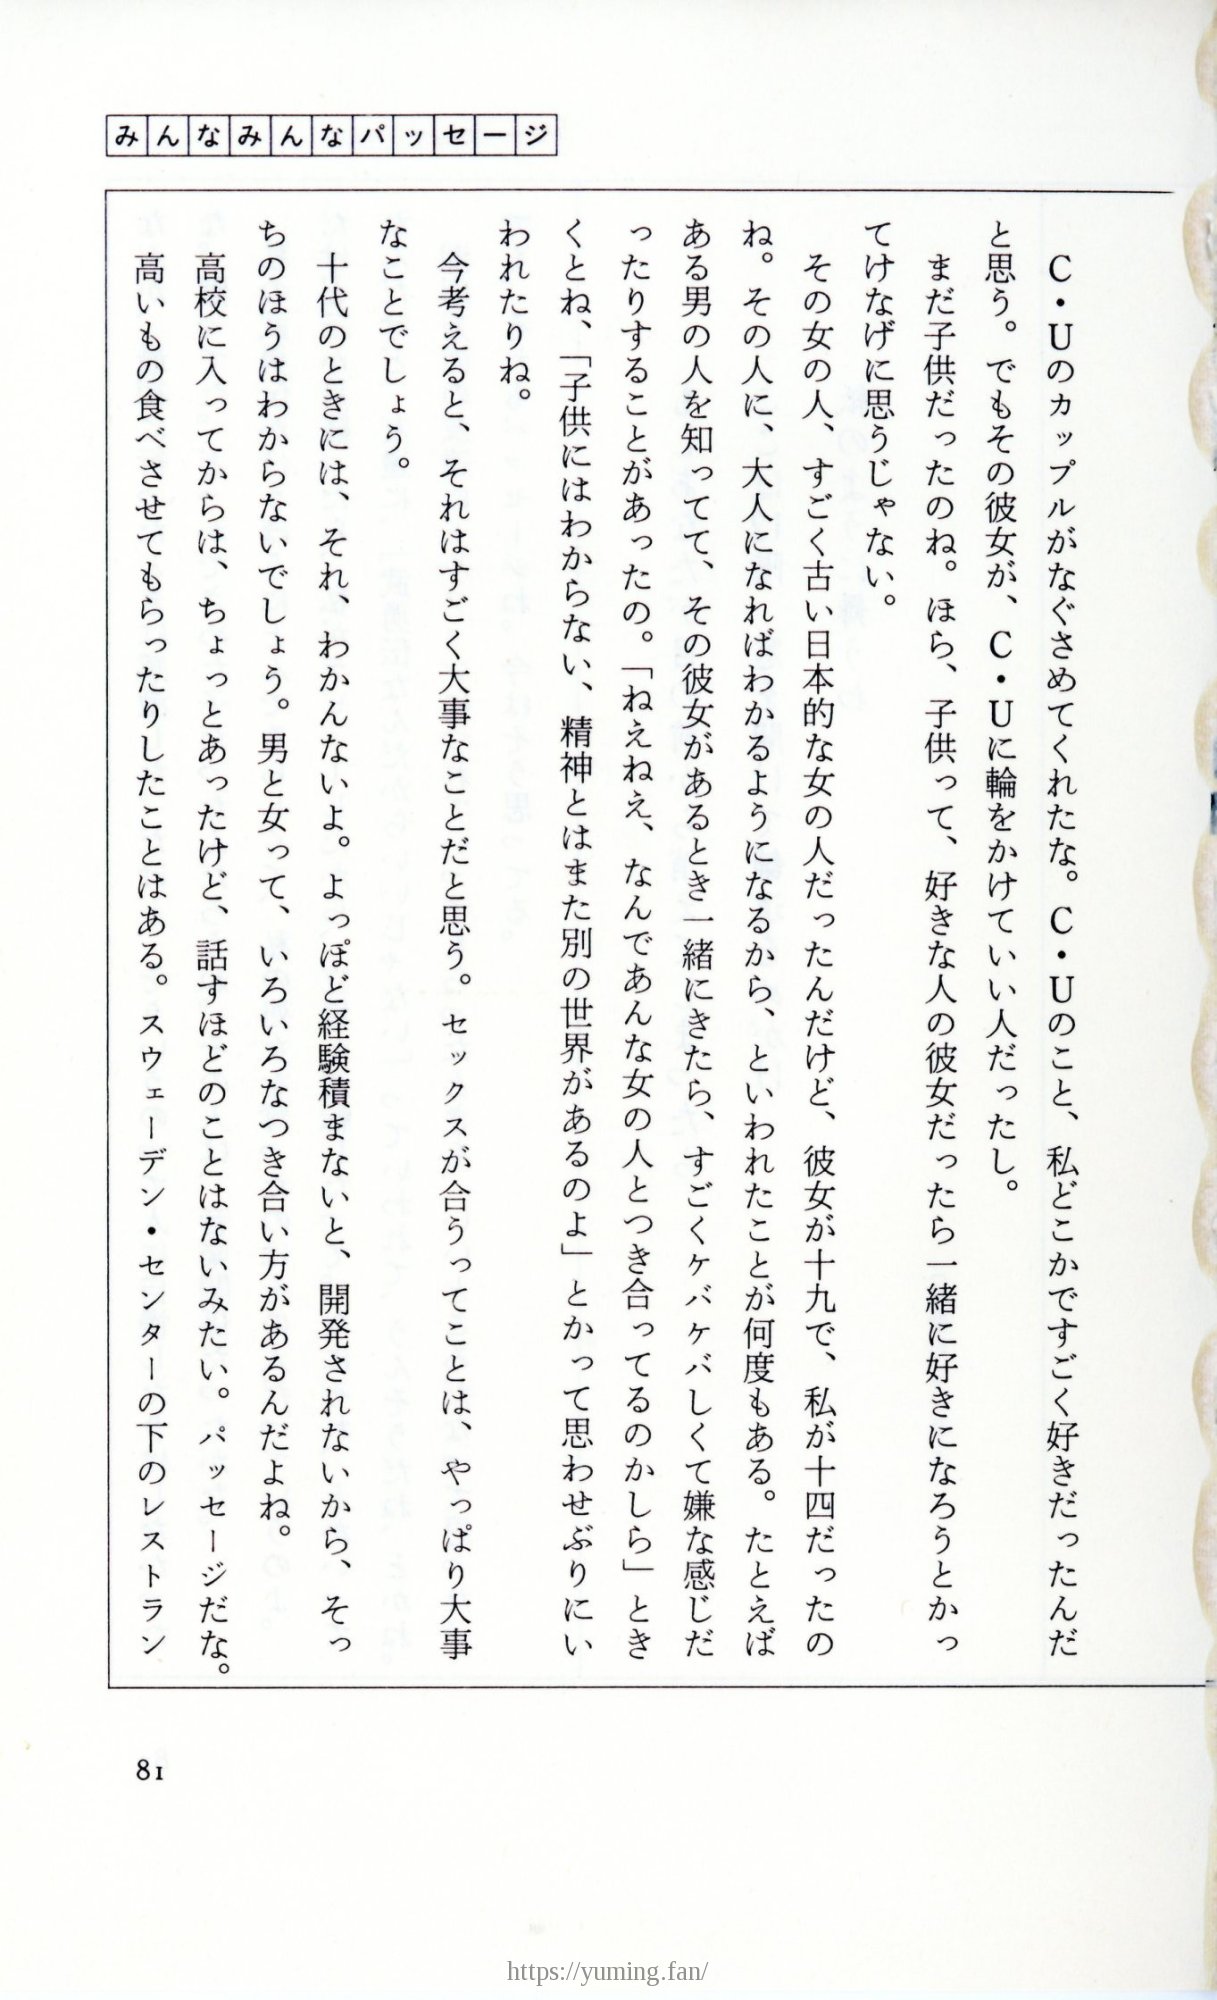 みんなみんなパッセージ
　C・Uのカップルがなぐさめてくれたな。C・Uのこと、私どこかですごく好きだったんだ
と思う。でもその彼女が、C・Uに輪をかけていい人だったし。
　まだ子供だったのね。ほら、子供って、好きな人の彼女だったら一緒に好きになろうとかっ
てけなげに思うじゃない。
　その女の人、すごく古い日本的な女の人だったんだけど、彼女が十九で、私が十四だったの
ね。その人に、大人になればわかるようになるから、といわれたことが何度もある。たとえば
ある男の人を知ってて、その彼女があるとき一緒にきたら、すごくケバケバしくて嫌な感じだ
ったりすることがあったの。「ねえねえ、なんであんな女の人とつき合ってるのかしら」とき
くとね、「子供にはわからない、精神とはまた別の世界があるのよ」とかって思わせぶりにい
われたりね。
　今考えると、それはすごく大事なことだと思う。セックスが合うってことは、やっぱり大事
なことでしょう。
　十代のときには、それ、わかんないよ。よっぽど経験積まないと、開発されないから、そっ
ちのほうはわからないでしょう。男と女って、いろいろなつき合い方があるんだよね。
　高校に入ってからは、ちょっとあったけど、話すほどのことはないみたい。パッセージだな。
　高いもの食べさせてもらったりしたことはある。スウェーデン・センターの下のレストラン
81
https://yuming.fan/